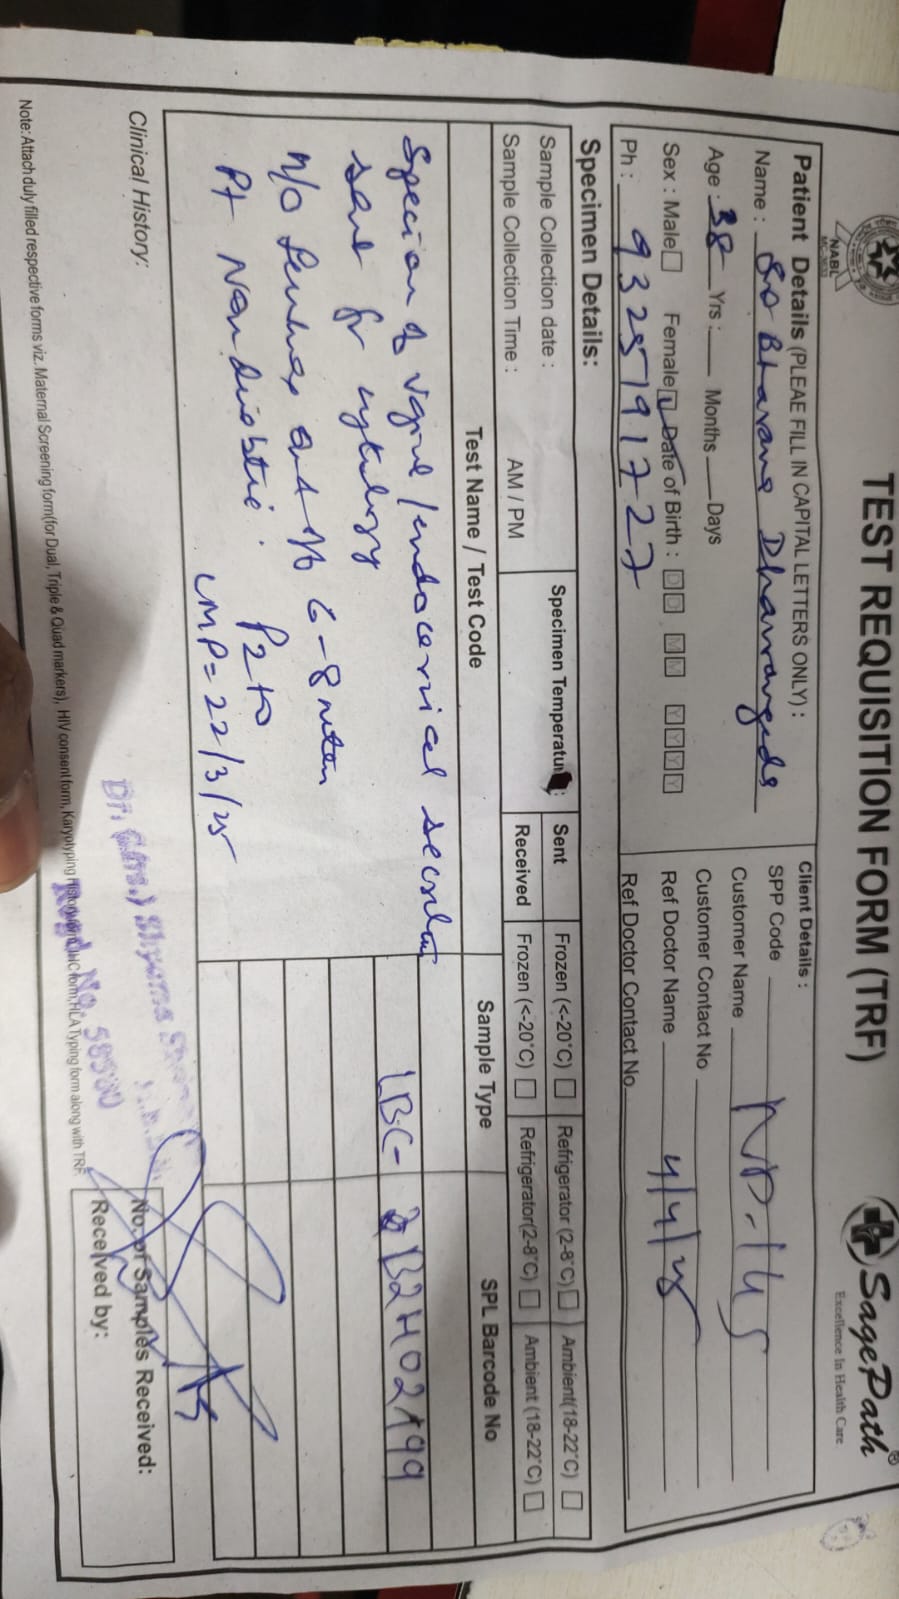 TEST REQUISITION FORM (TRF)
SagePath®
Excellence In Health Care
NABL
Patient Details (PLEAE FILL IN CAPITAL LETTERS ONLY) :
Name : Bhavana
Age : 38 Yrs : Months Days
Sex : Male Female Date of Birth : DD MM YYYY
Ph : 9325791727
Client Details :
SPP Code
Customer Name
Customer Contact No
Ref Doctor Name 4/4/25
Ref Doctor Contact No
Specimen Details:
Sample Collection date :
Sample Collection Time : AM / PM
Specimen Temperatu :
Sent Frozen (<-20°C) Refrigerator (2-8°C) Ambient(18-22°C)
Received Frozen (<-20°C) Refrigerator(2-8°C) Ambient (18-22°C)
Test Name / Test Code Sample Type SPL Barcode No
of / endocervical
LBC-
sent for cytology
6-8
Pt Non
LMP = 22/3/25
Clinical History:
Dr. (Mrs.) Shyama
Regd. No.
No. of Samples Received:
Received by:
Note: Attach duly filled respective forms viz. Maternal Screening form(for Dual, Triple & Quad markers), HIV consent form, Karyotyping History form, IHC form, HLA Typing form along with TRF